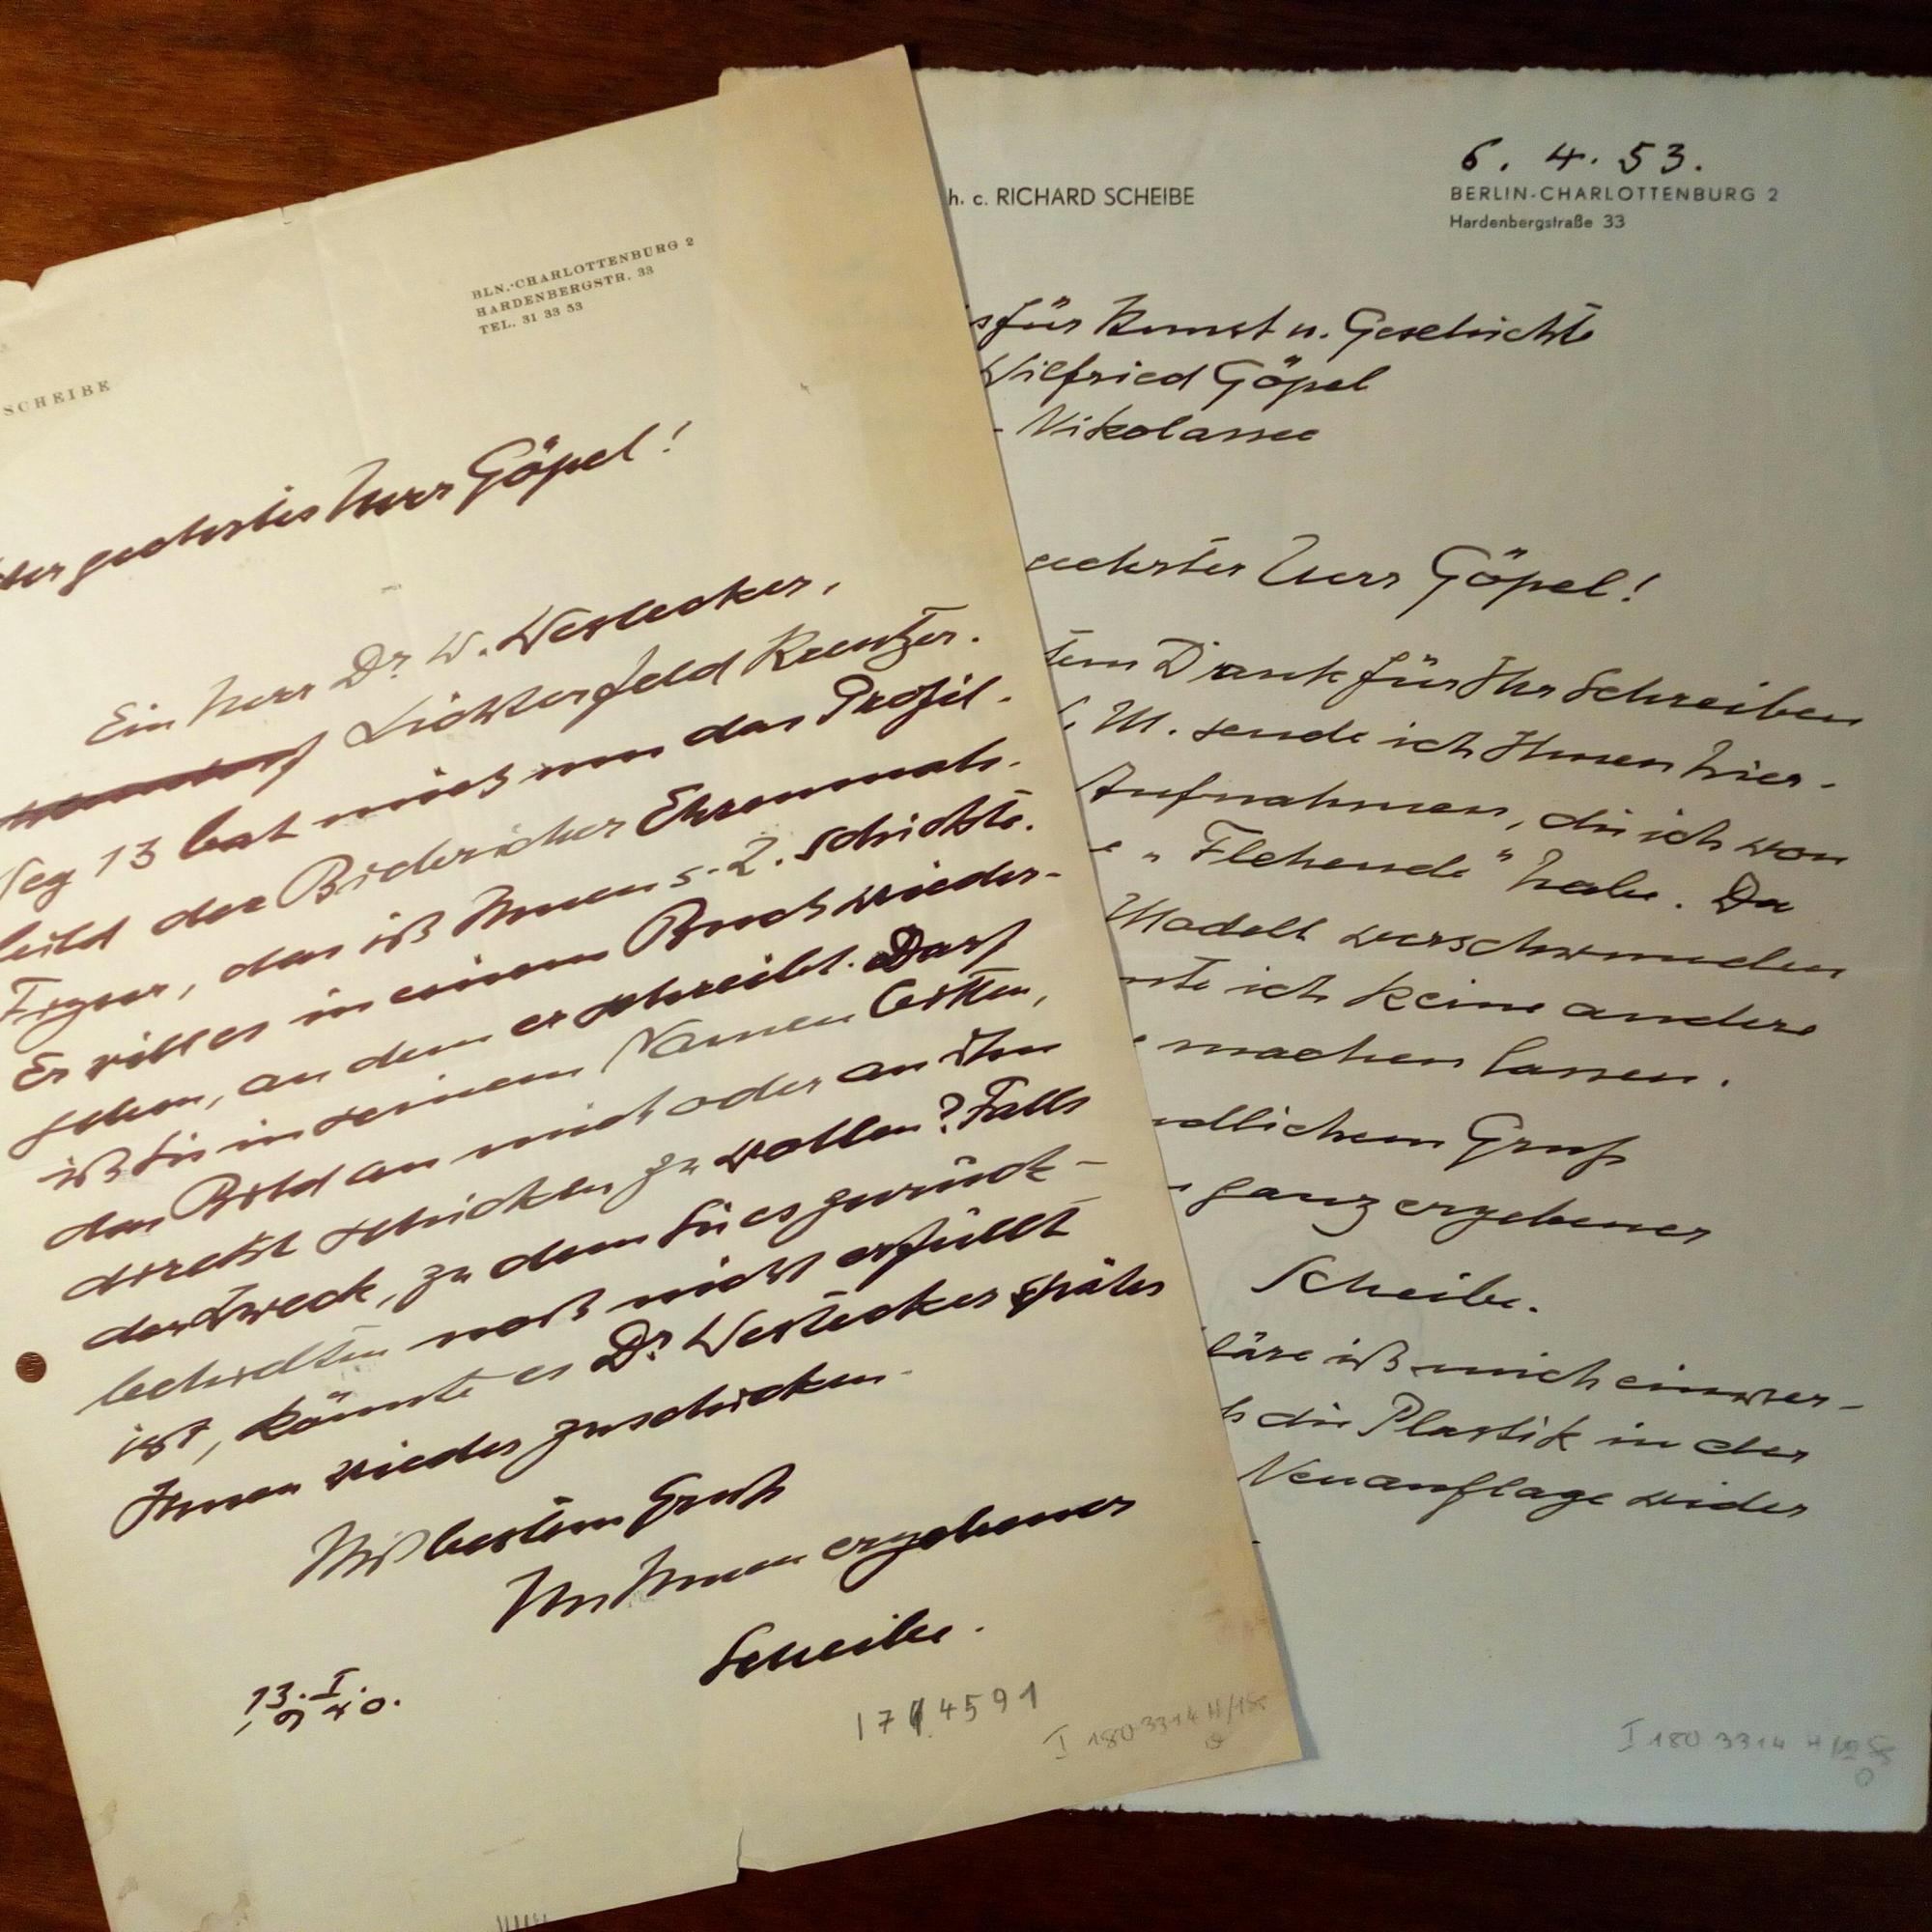 BLN.-CHARLOTTENBURG 2
HARDENBERGSTR. 33
TEL. 31 33 53
SCHEIBE
geehrter Herr Göpel!
Ein Herr Dr W. Westecker,
Lichterfeld Reutzer.
Weg 13 bat mich um das Profil-
bild der Biebricher Ehrenmals-
Figur, das ich Ihnen s. Z. schickte.
Er will es in einem Buch wieder-
geben, an dem er schreibt. Darf
ich Sie in seinem Namen bitten,
das Bild an mich oder an ihn
direkt schicken zu wollen? Falls
der Zweck, zu dem Sie es zurück-
behielten noch nicht erfüllt
ist, könnte es Dr Westecker später
Ihnen wieder zuschicken.
Mit bestem Gruß
Ihr Ihnen ergebener
Scheibe.
13. I.
1940.
4591
I 180 3314 H/
h. c. RICHARD SCHEIBE
6. 4. 53.
BERLIN-CHARLOTTENBURG 2
Hardenbergstraße 33
für Kunst u. Geschichte
Wilfried Göpel
- Nikolassee
geehrter Herr Göpel!
tem Dank für Ihr Schreiben
M. sende ich Ihnen hier-
Aufnahmen, die ich von
„Flehende" habe. Da
Modell verschwunden
nte ich keine andere
machen lassen.
ndlichem Gruß
ganz ergebener
Scheibe.
läre ich mich einver-
die Plastik in der
Neuauflage wieder
I 180 3314 H/